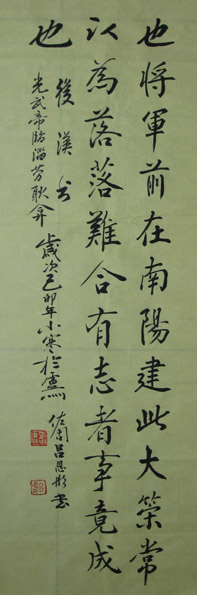 也將軍前在南陽建此大策常
以為落落難合有志者事竟成
也
後漢書
光武帝臨淄劳耿弇
歲次己卯年小寒於
佐周呂恩